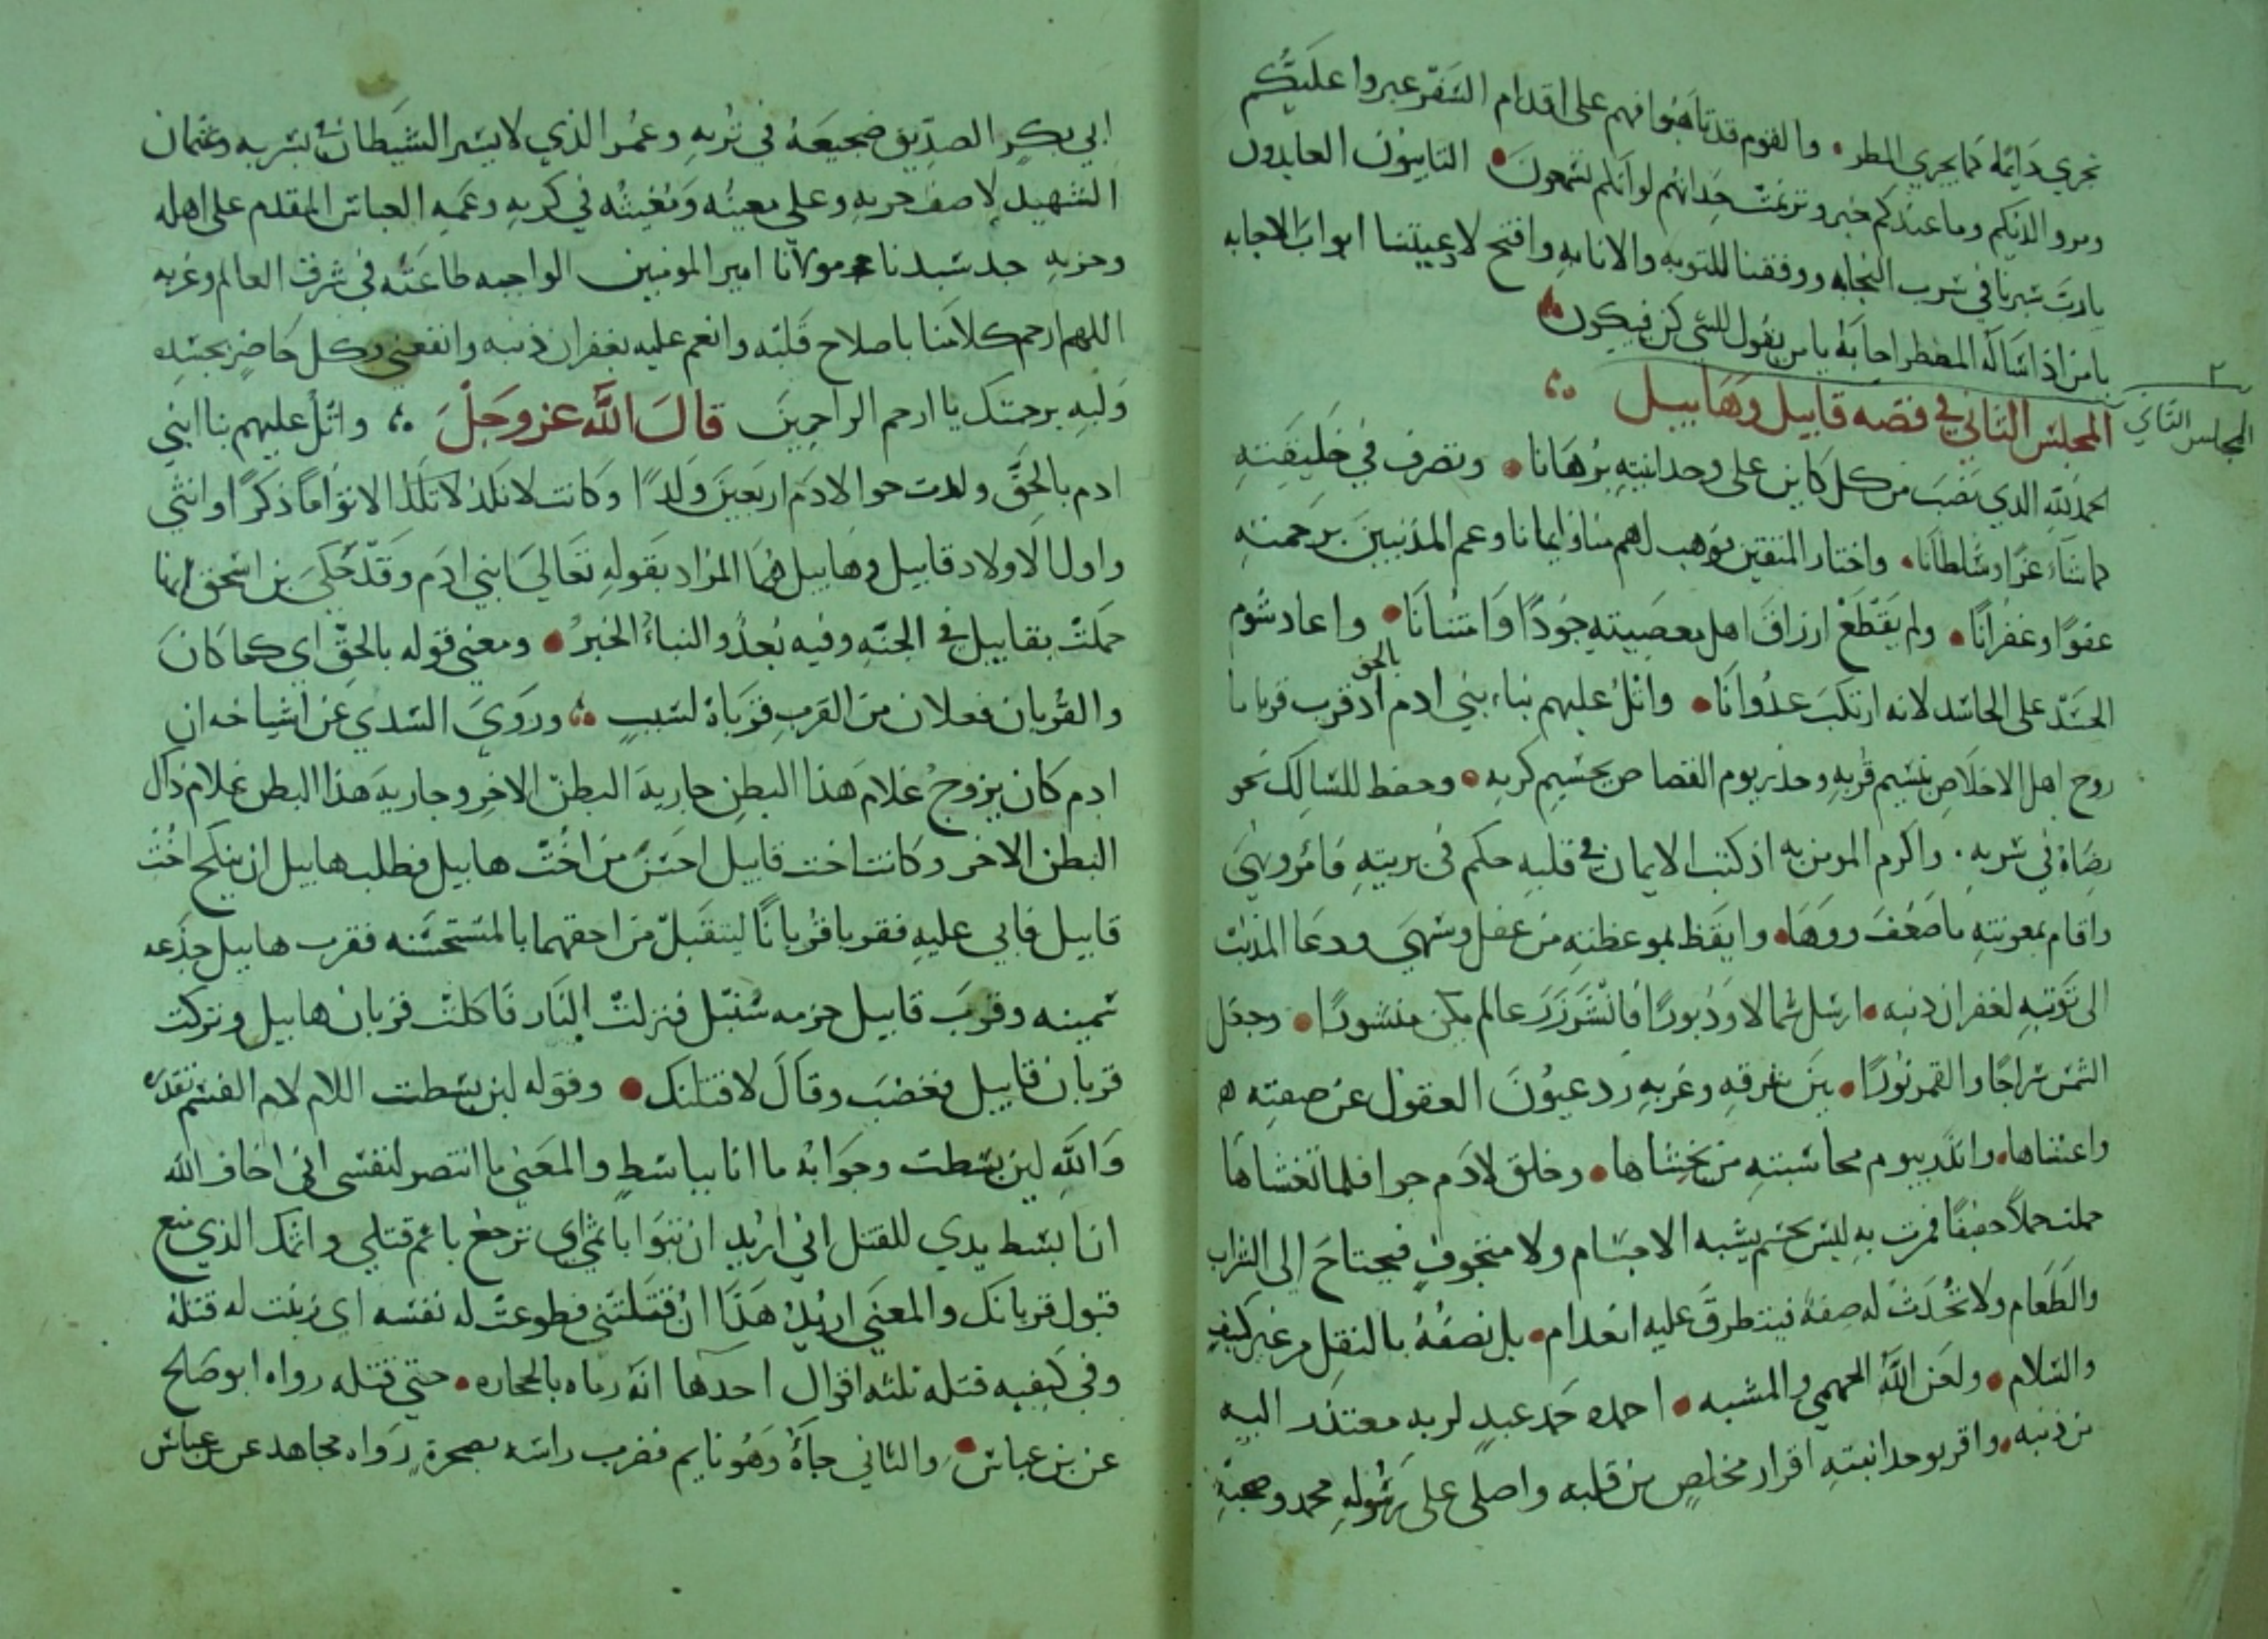 تجري دايمًا كما يجري المطر • والقوم قد تاهبوا فهم على اقدام السفر عبروا عليكم
ومروا لديكم وما عندكم خبر وترنمت حداتهم لو انكم تسمعون • التايبون العابدون
يارب سيرنا في سرب النجابه ووفقنا للتوبه والانابه وافتح لادعيتنا ابواب الاجابه
يا من اذا ساله المضطر اجابه يا من يقول للشي كن فيكون
المجلس الثاني في قصه قابيل وهابيل
٢
المجلس الثاني
الحمد لله الذي نصب من كل كاين على وحدانيته برهانا • وتصرف في خليقته
كما شاء عزا وسلطانا • واختار المتقين فوهب لهم امنا وايمانا وعم المذنبين برحمته
عفوًا وغفرانًا • ولم يقطع ارزاق اهل معصيته جودًا وامتنانا • واعاد شوم
الحسد على الحاسد لانه ارتكب عدوانًا • واتل عليهم نباء بني ادم بالحق اذ قربا قربانا
روح اهل الاخلاص بنسيم قربه وحذر يوم القصاص بجسيم كربه • وحفظ للسالك نحو
رضاه في سربه • واكرم المومن به اذ كتب الايمان في قلبه حكم في بريته فامر ونهى
واقام بمعونته ما ضعف ووها • وايقظ بموعظته من غفل وسهى ودعا المذنب
الى توبته لغفران ذنبه • ارسل شمالا ودبورًا فانشر زرع عالم يكن منشورًا • وجعل
الشمس سراجًا والقمر نورًا • بين شرقه وغربه رد عيون العقول عن صفته
واعشاها • وانذر بيوم محاسبته من يخشاها • وخلق لادم حوا فلما تغشاها
حملت حملاً خفيفًا فمرت به ليس بجسم يشبه الاجسام ولا متجوف فيحتاج الى الشراب
والطعام ولا تحدث له صفة فيتطرق عليه انعدام • بل نصفه بالنقل من غير كيف
والسلام • ولعن الله الجهمي والمشبه • احمده حمد عبدٍ لربه معتذر اليه
من ذنبه • واقر بوحدانيته اقرار مخلصٍ من قلبه واصلي على رسوله محمد وصحبه
ابي بكر الصديق ضجيعه في تربه وعمر الذي لا يسير الشيطان بسربه وعثمان
الشهيد لا صف حربه وعلي معينه ومغيثه في كربه وعمه العباس المقدم على اهله
وحزبه جد سيدنا ومولانا امير المومنين الواجبه طاعته في شرق العالم وغربه
اللهم ارحم كلا منا باصلاح قلبه وانعم عليه بغفران ذنبه وانفعني وكل حاضر بحسده
ولبه برحمتك يا ارحم الراحمين قال الله عز وجل ؞ واتل عليهم نبا ابني
ادم بالحق ولدت حوا لادم اربعين ولدًا وكانت لا تلد لا تلد الا توامًا ذكرًا وانثى
واول الاولاد قابيل وهابيل هما المراد بقوله تعالى ابني ادم وقد حكى بن اسحق انها
حملت بقابيل في الجنه وفيه بعدٌ والنباء الخبر • ومعنى قوله بالحق اي كما كان
والقربان فعلان من القرب فقرباه لسبب ؞ وروى السدي عن اشياخه ان
ادم كان يزوج غلام هذا البطن جارية البطن الاخر وجارية هذا البطن غلام ذاك
البطن الاخر وكانت اخت قابيل احسن من اخت هابيل فطلب هابيل ان ينكح اخت
قابيل فابى عليه فقربا قربانًا ليتقبل من احقهما بالمستحسنه فقرب هابيل جذعه
سمينه وقرب قابيل حزمه سنبل فنزلت النار فاكلت قربان هابيل وتركت
قربان قابيل فغضب وقال لاقتلنك • وقوله لين بسطت اللام لام القسم تقديره
والله لين بسطت وجوابه ما انا بباسطٍ والمعنى ما انتصر لنفسي اني اخاف الله
ان ابسط يدي للقتل اني اريد ان تبوا باثمي اي ترجع باثم قتلي واثمك الذي منع
قبول قربانك والمعنى اريد هذا ان قتلتني فطوعت له نفسه اي زينت له قتله
وفي كيفيه قتله ثلثه اقوال احدها انه رماه بالحجاره • حتى قتله رواه ابو صالح
عن بن عباس • والثاني جاه وهو نايم فضرب راسه بصخرة رواه مجاهد عن عباس